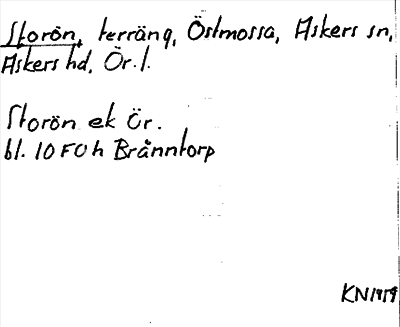 Storön, terräng, Östmossa, Askers sn,
Askers hd, Ör. l.
Storön ek Ör.
bl. 10 F 0 h Brånntorp
KN 1959